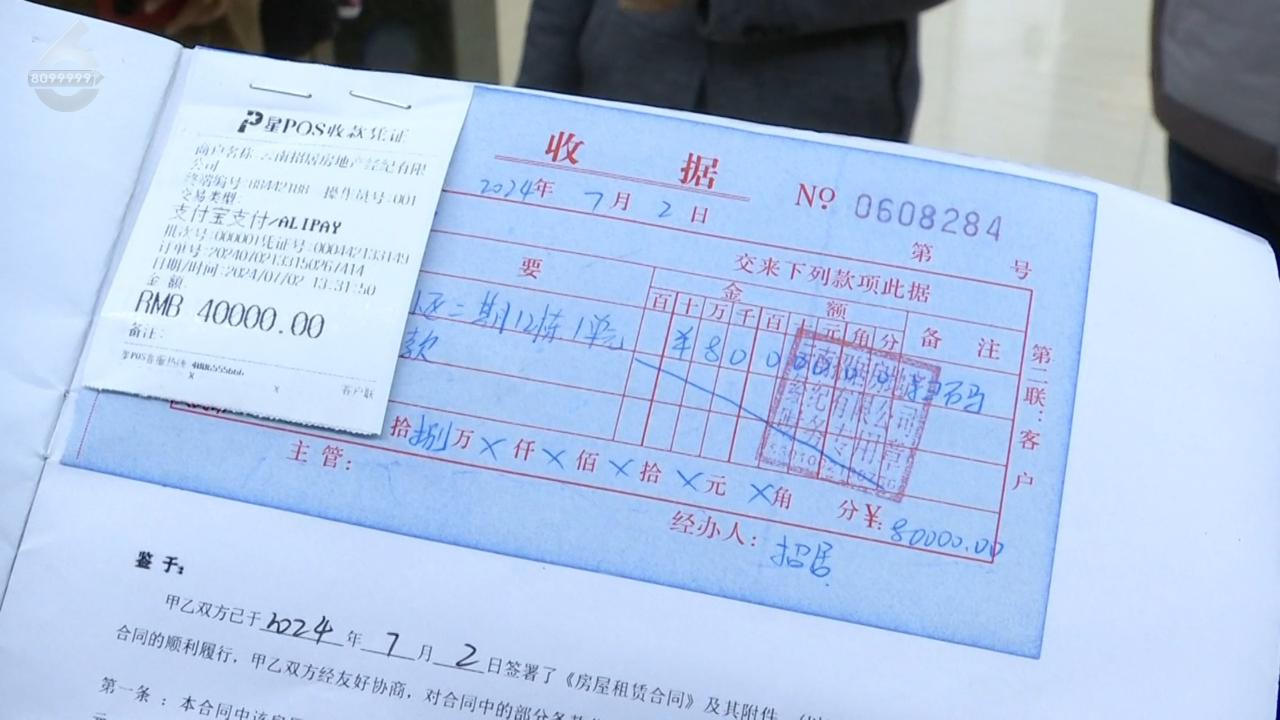 8099999
星POS收款凭证
商户名称:云南招居房地产经纪有限
公司
终端编号:88442188 操作员号:001
交易类型:
支付宝支付/ALIPAY
批次号:000001凭证号:000442133149
日期/时间:2024/07/02 13:31:50
金额:
RMB 40000.00
备注:
星POS客服热线
x x 客户联
收 据 № 0608284
2024年 7月 2日
第 号
交来下列款项此据
要 金 额 备 注
百十万千百十元角分
区二期12栋1单元 ¥8000000 扫码
款
拾捌万×仟×佰×拾×元×角 分¥:80000.00
主管: 经办人:招居
第二联:客户
鉴于:
甲乙双方已于2024年7月2日签署了《房屋租赁合同》及其附件
合同的顺利履行,甲乙双方经友好协商,对合同中的部分条
第一条:本合同中该房